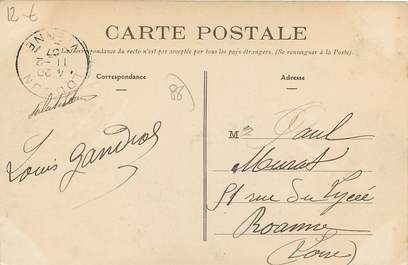 12 €
CARTE POSTALE
La Correspondance du recto n'est pas acceptée par tous les pays étrangers. (Se renseigner à la Poste).
Correspondance
Adresse
4 20
11 - 2
07
86
Louis
Paul
Murat
51 rue du Lycée
Roanne
(Loire)